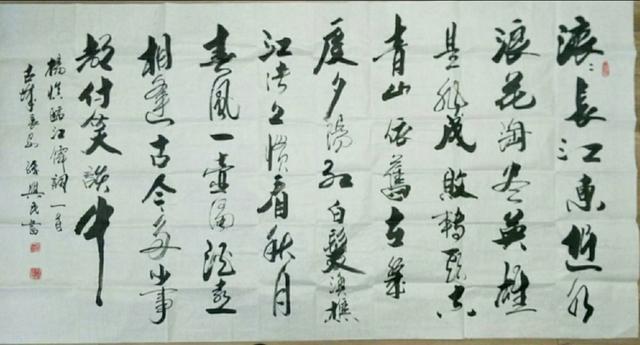 滚〻长江东逝水
浪花淘尽英雄
是非成败转头空
青山依旧在几
度夕阳红白髮渔樵
江渚上惯看秋月
春风一壶浊酒喜
相逢古今多少事
都付笑谈中
杨慎临江僊词一首